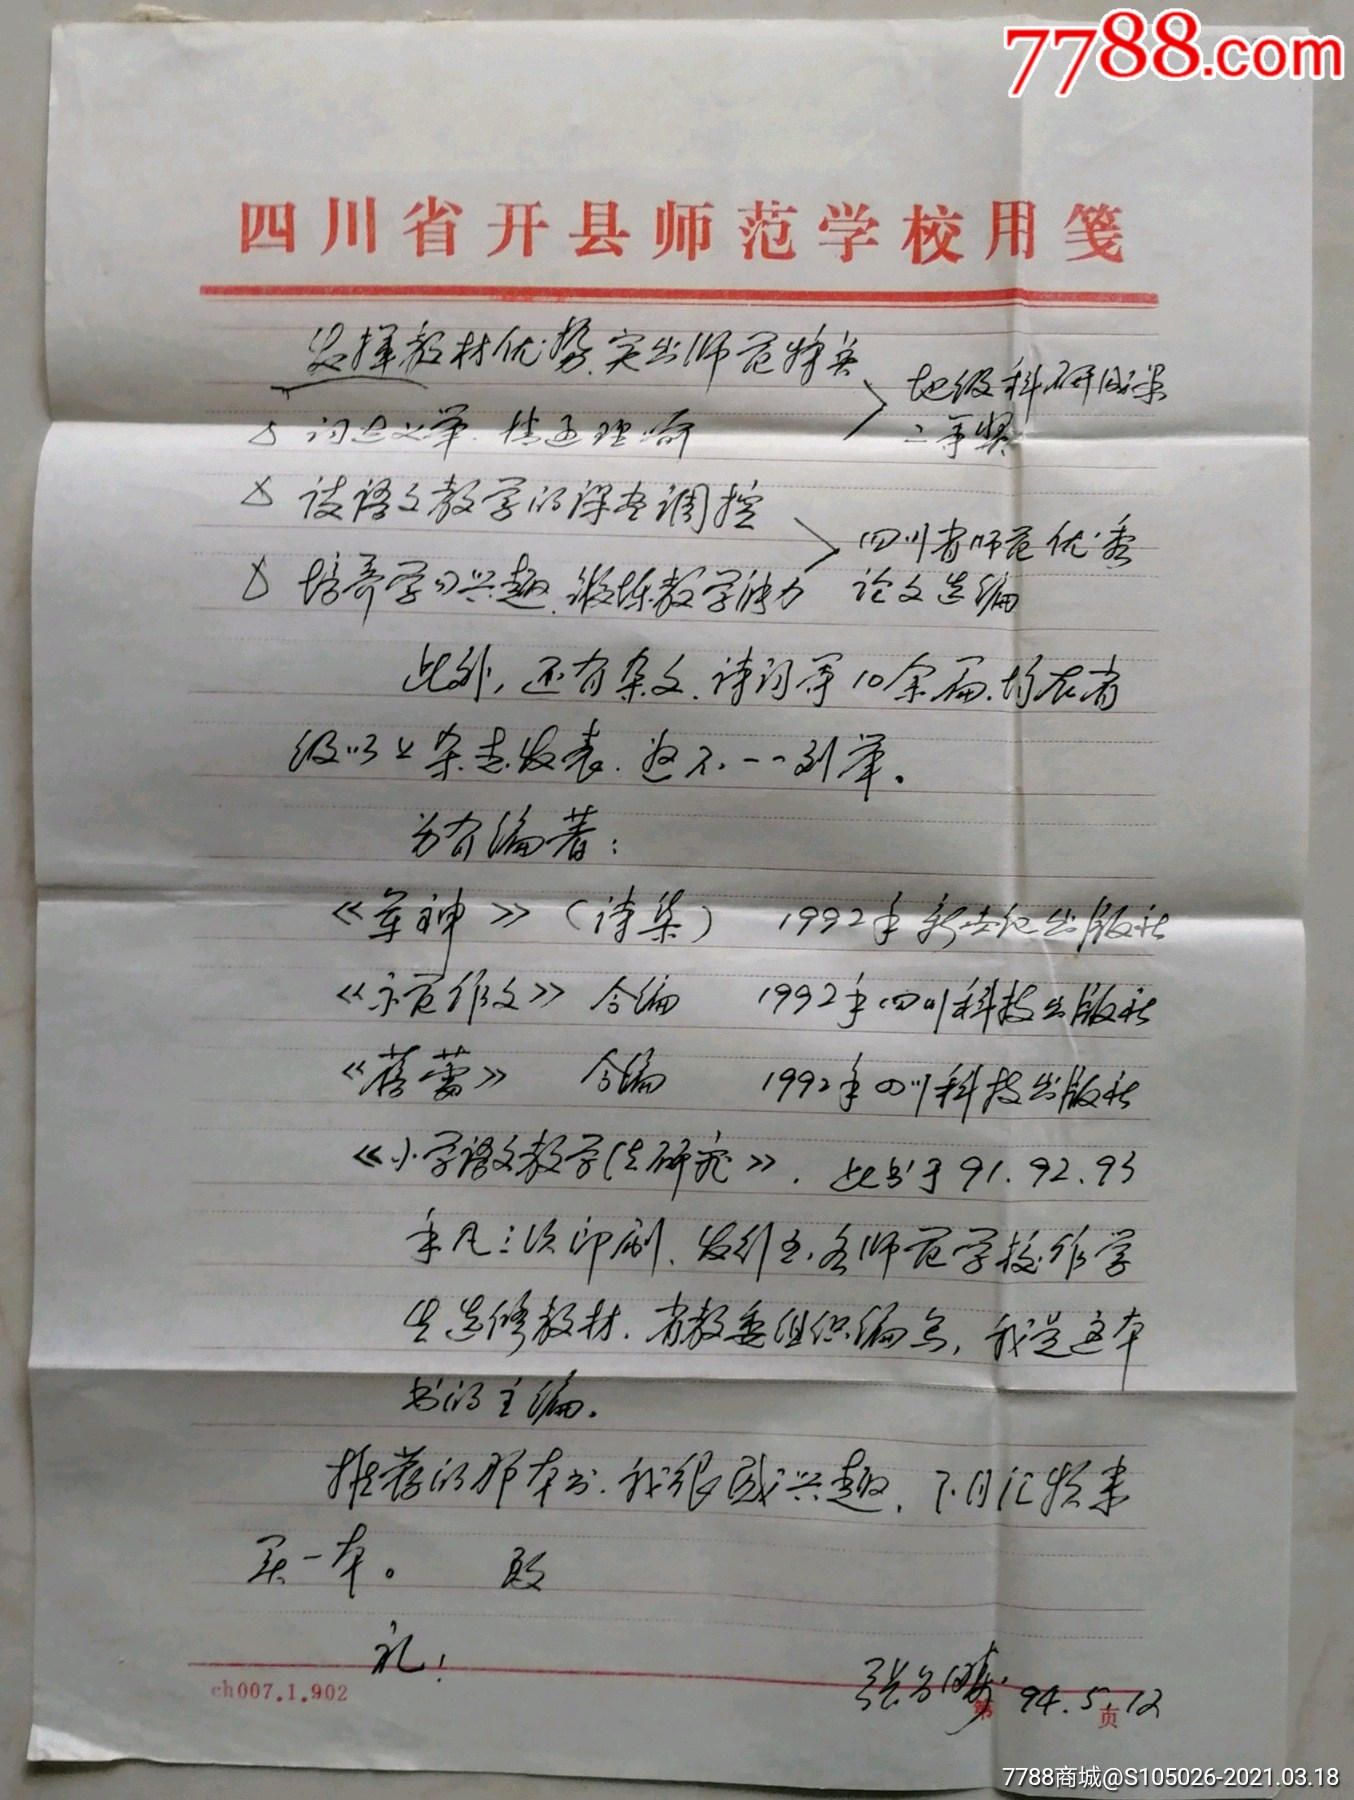 7788.com
四川省开县师范学校用笺
发挥教材优势、突出师范特点
地级科研成果
二等奖
词达义举、情通理
谈语文教学的深层调控
培养学习兴趣、锻炼教学能力
四川省师范优秀
论文选编
此外,还有杂文、诗词等10余篇、均在省
级以上杂志发表、这不一一列举。
另有编著:
《军神》(诗集) 1992年新世纪出版社
《示范作文》 合编 1992年四川科技出版社
《蓓蕾》 合编 1992年四川科技出版社
《小学语文教学法研究》、此书于91.92.93
年凡三次印刷、发行至各师范学校作学
生选修教材、省教委组织编写,我是这本
书的主编。
推荐的那本书、我很感兴趣、下月汇款来
买一本。 致
礼!
张 94.5.12
ch007.1.902
第 页
7788商城@S105026-2021.03.18